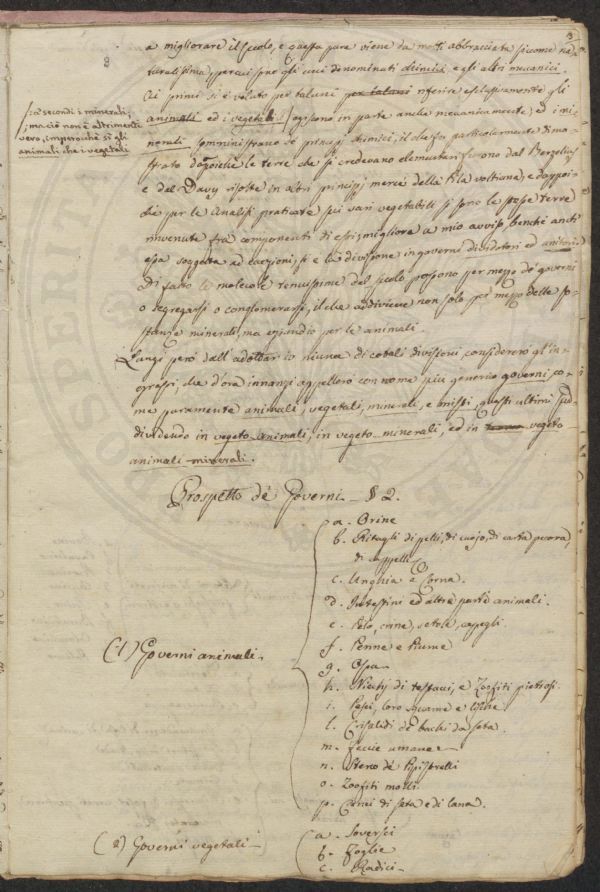 a migliorare il suolo, e questa pare viene da molti abbracciata siccome na-
turalissima, perciò sono gli uni denominati chimici e gli altri mecanici.
Ai primi si è voluto per taluni riferire esclusivamente gli
animali ed i vegetali / agiscono in parte anche mecanicamente, ed i mi-
nerali somministrano de' principj chimici, il che fu particolarmente dimo-
strato dapoiché le terre che si credevano elementari furono dal Berzelius
e del Davy risolte in altri principj mercé della Pila voltiana, e dappoi-
ché per le Analisi praticate sui vari vegetabili si sono le stesse terre
rinvenute fra componenti di essi; migliore a mio avviso, benché anch'
essa soggetta ad eccezioni, si è la divisione in governi dividitori ed unitori.
Di fatto le molecole tenuissime del suolo possono per mezzo de' governi
o segregarsi o conglomerarsi, il che addiviene non solo per mezzo delle so-
stanze minerali, ma eziandio per le animali.
Lungi però dall'adottar io niuna di cotali divisioni considererò gl'in-
grassi, che d'ora innanzi appellerò con nome più generico governi, co-
me puramente animali, vegetali, minerali, e misti, questi ultimi sud-
dividendo in vegeto-animali, in vegeto-minerali, ed in vegeto
animali-minerali.
ai secondi i minerali;
ma ciò non è altrimenti
vero, imperochè sì gli
animali che i vegetali
Prospetto de' Governi - § 2.
(1) Governi animali -
a. Orine
b. Ritagli di pelli, di cuojo, di carta pecora,
di cappelli
c. Unghia e Corna.
d. Intestini ed altre parti animali.
e. Pelo, crine, setole, capegli.
f. Penne e Piume
g. Ossa
h. Nicchj di testacei, e Zoofiti pietrosi.
i. Pesci, loro squame e lische
l. Crisalidi de' bachi da seta.
m. Feccie umane
n. Sterco de' Pipistrelli
o. Zoofiti molli.
p. Cenci di seta e di lana.
(2) Governi vegetali -
a. Soversci
b. Foglie
c. Radici -